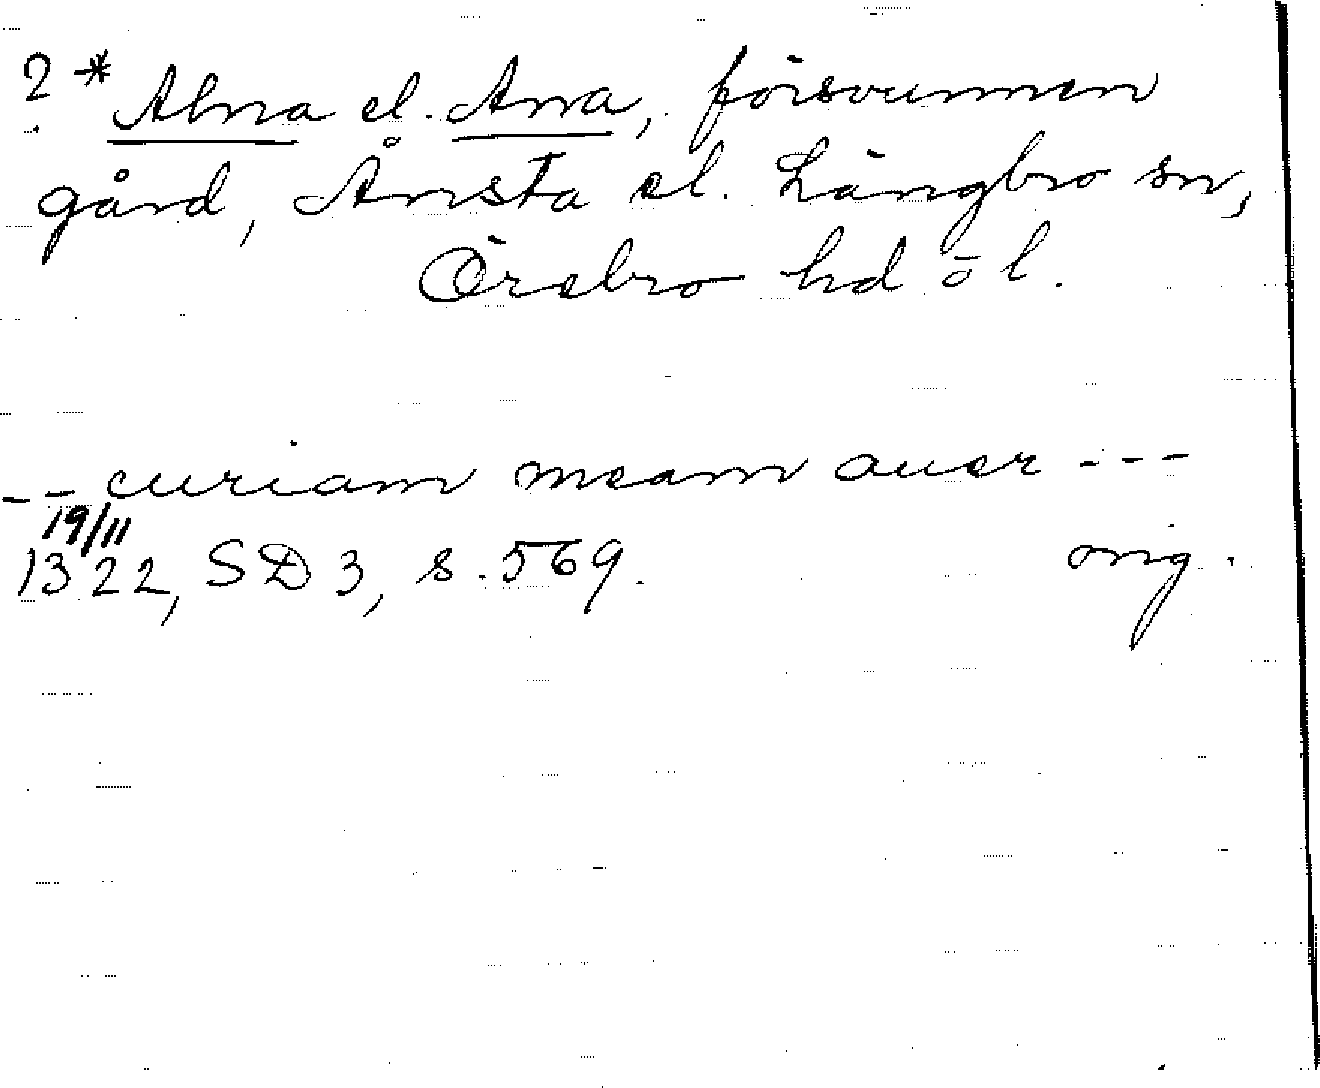 ? * Alnra el. Anra, försvunnen
gård, Ånsta el. Längbro sn,
Örebro hd ö l.
-- curiam meam auer ---
19/11
1322, SD 3, s. 569. orig.